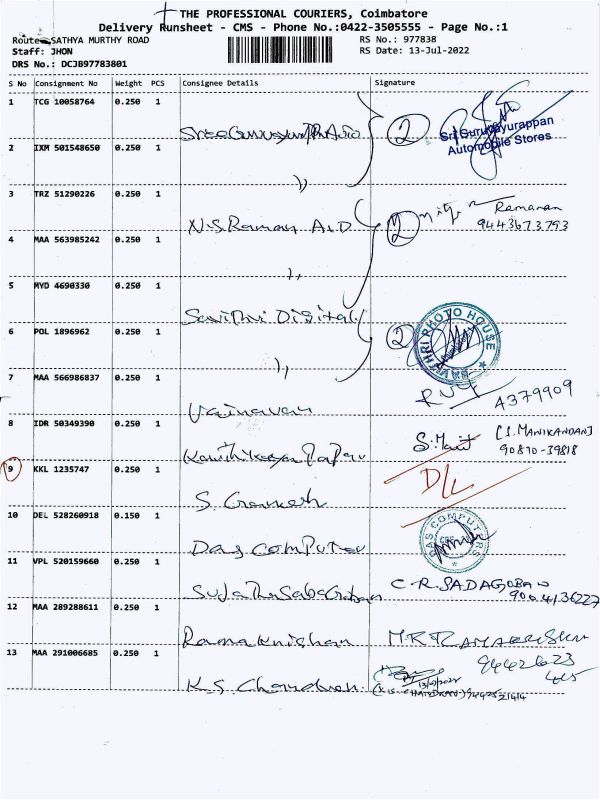 THE PROFESSIONAL COURIERS, Coimbatore
Delivery Runsheet - CMS - Phone No.:0422-3505555 - Page No.:1
Route: SATHYA MURTHY ROAD
RS No.: 977838
Staff: JHON
RS Date: 13-Jul-2022
DRS No.: DCJB97783801
S No Consignment No Weight PCS Consignee Details Signature
1 TCG 10058764 0.250 1
Sri Guruvayurappan
Automobile Stores
2 IXM 501548650 0.250 1
2
3 TRZ 51290226 0.250 1
N.S Raman A.D 2 Ramanan
9443673793
4 MAA 563985242 0.250 1
5 MYD 4690330 0.250 1
Savithri Digital
6 POL 1896962 0.250 1
2 SAVITHRI PHOTO HOUSE
7 MAA 566986837 0.250 1
4379909
8 IDR 50349390 0.250 1
S. Mani [S. MANIKANDAN]
90870-39818
9 KKL 1235747 0.250 1
D/L
S. Ganesh
10 DEL 528260918 0.150 1
Das Computer DAS COMPUTERS
11 VPL 520159660 0.250 1
C.R. SADAGOBAN
12 MAA 289288611 0.250 1
Ramakrishan
13 MAA 291006685 0.250 1
K.S. Chandran